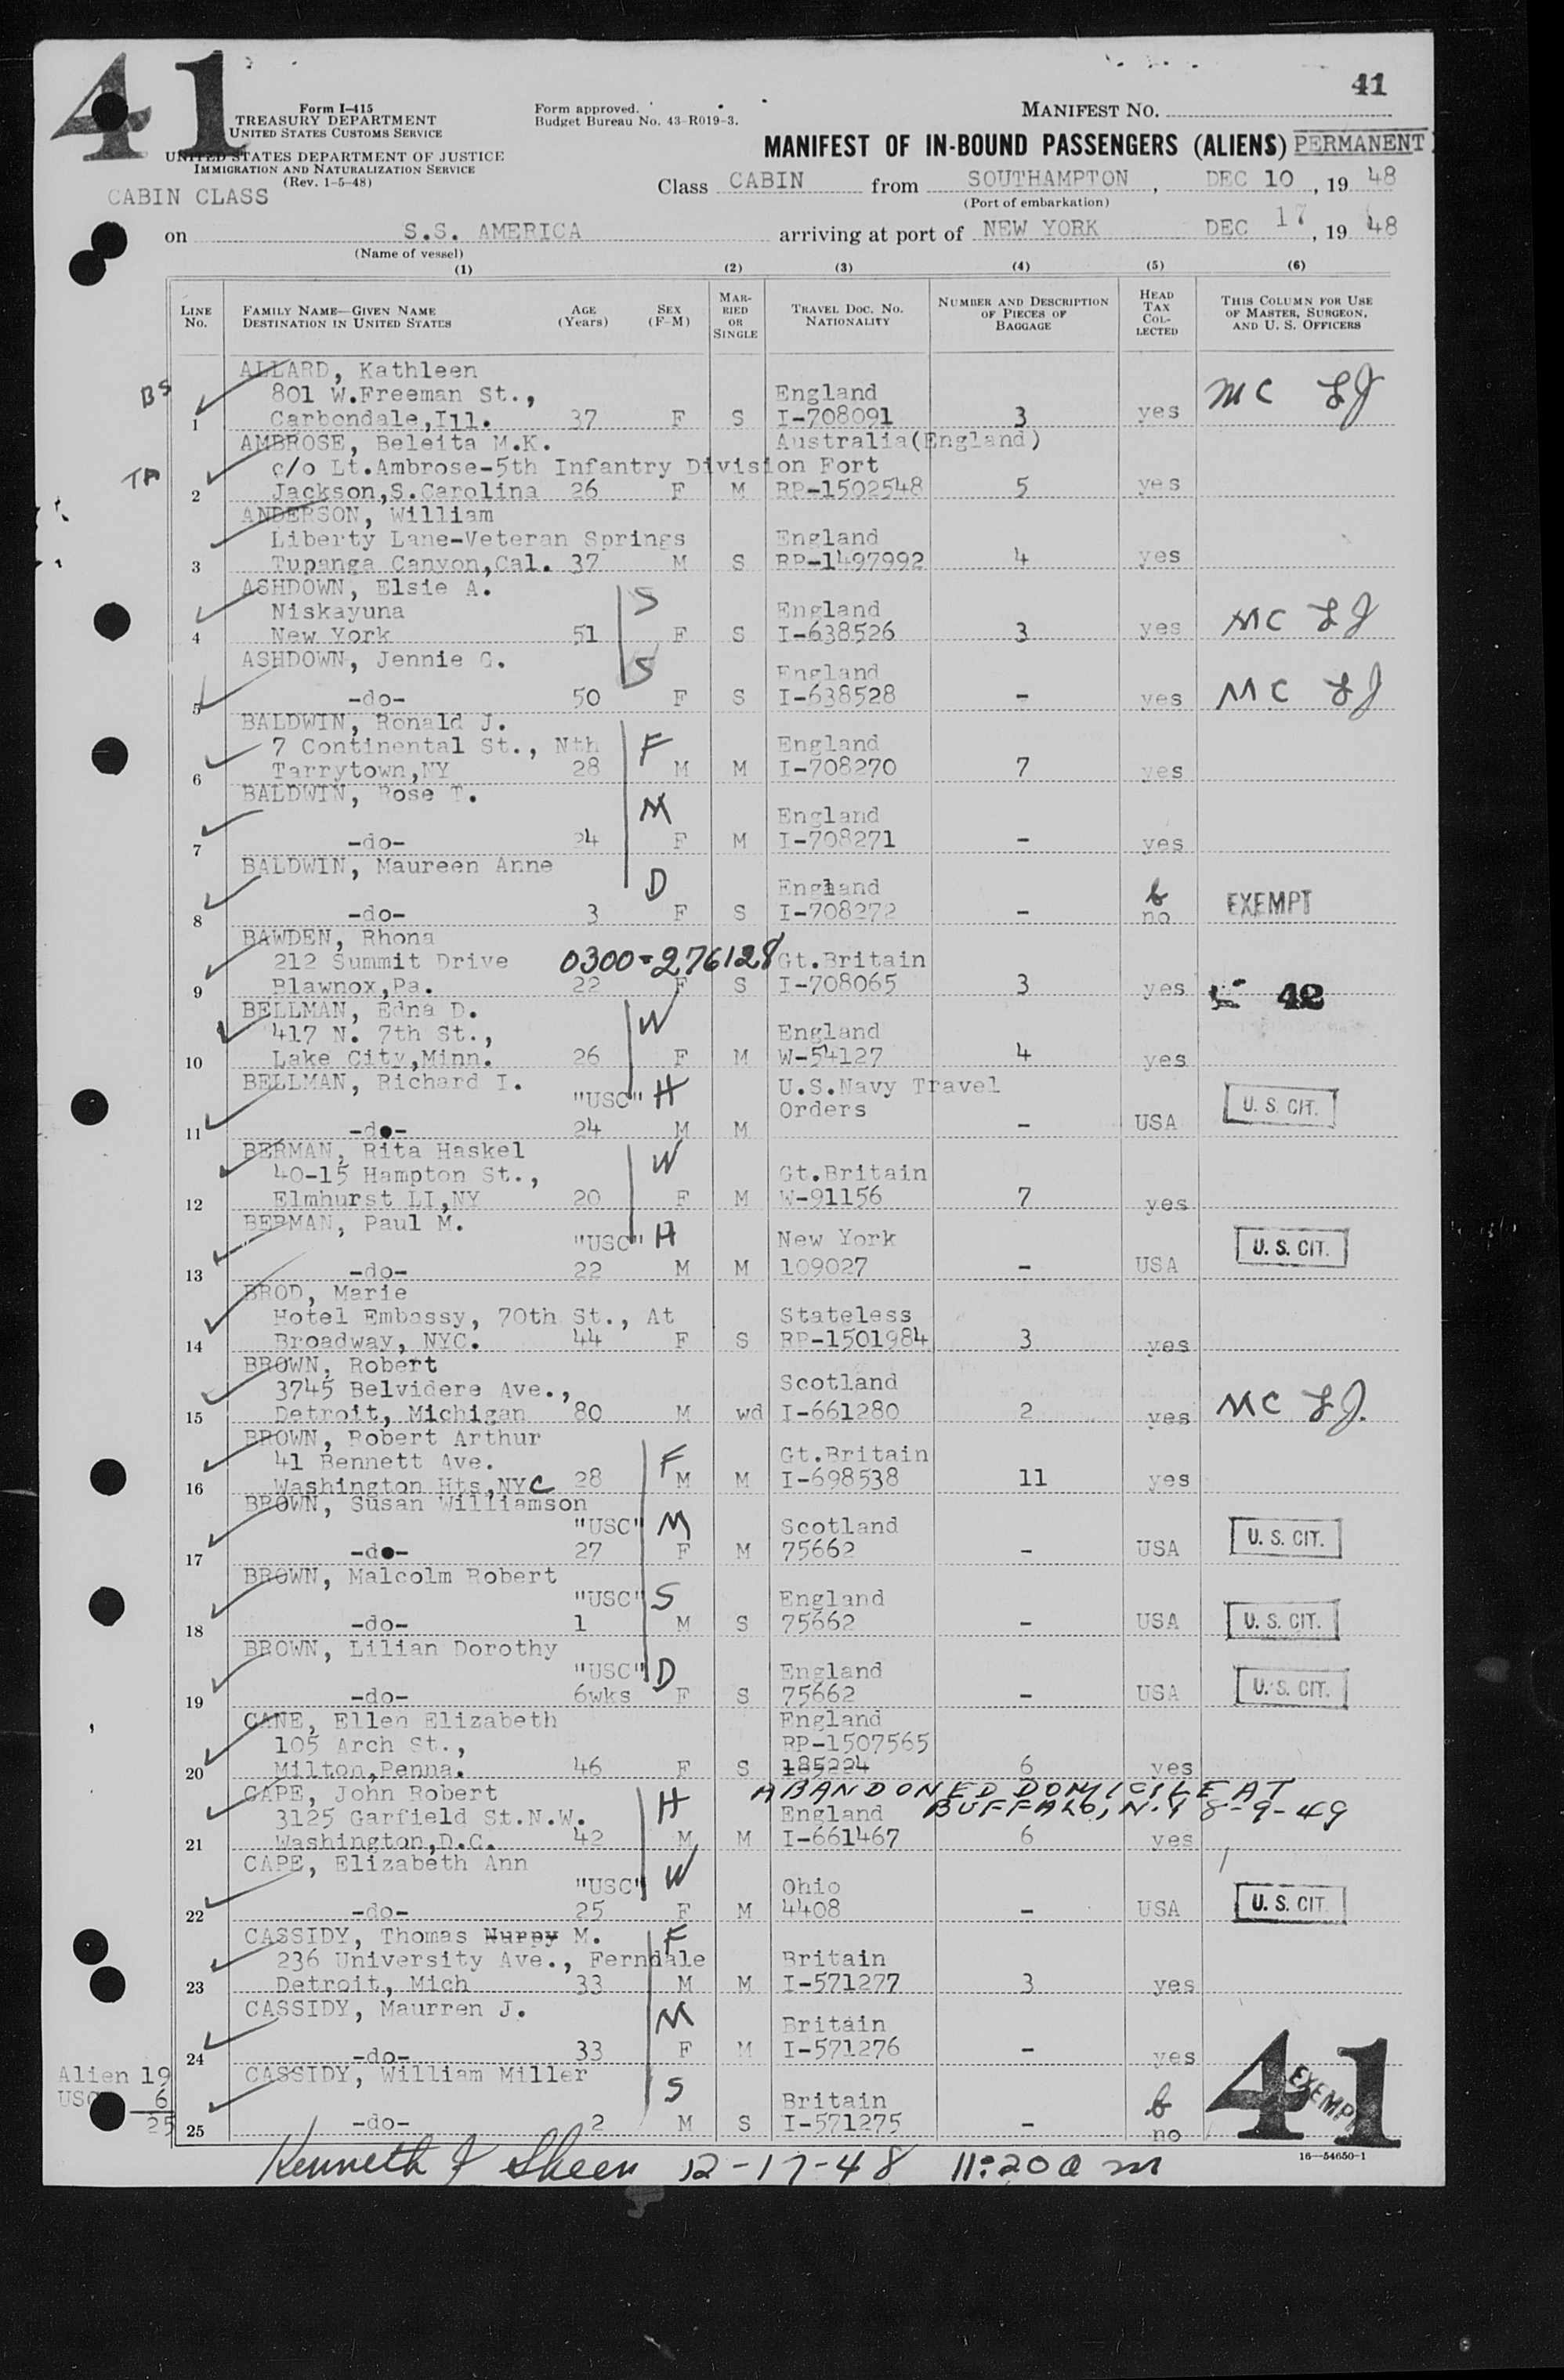 41
41
Form I-415
TREASURY DEPARTMENT
UNITED STATES CUSTOMS SERVICE
UNITED STATES DEPARTMENT OF JUSTICE
IMMIGRATION AND NATURALIZATION SERVICE
(Rev. 1-5-48)
Form approved.
Budget Bureau No. 43-R019-3.
MANIFEST NO.
MANIFEST OF IN-BOUND PASSENGERS (ALIENS) PERMANENT
CABIN CLASS
Class CABIN from SOUTHAMPTON, DEC 10, 19 48
(Port of embarkation)
on S.S. AMERICA arriving at port of NEW YORK DEC 17, 19 48
(Name of vessel)
(1) (2) (3) (4) (5) (6)
LINE NO. FAMILY NAME—GIVEN NAME DESTINATION IN UNITED STATES AGE (Years) SEX (F-M) MARRIED OR SINGLE TRAVEL DOC. NO. NATIONALITY NUMBER AND DESCRIPTION OF PIECES OF BAGGAGE HEAD TAX COLLECTED THIS COLUMN FOR USE OF MASTER, SURGEON, AND U. S. OFFICERS
ALLARD, Kathleen
BS 801 W.Freeman St., England MC LJ
1 Carbondale,Ill. 37 F S I-708091 3 yes
AMBROSE, Beleita M.K. Australia(England)
TA c/o Lt.Ambrose-5th Infantry Division Fort
2 Jackson,S.Carolina 26 F M RP-1502548 5 yes
ANDERSON, William
Liberty Lane-Veteran Springs England
3 Tupanga Canyon,Cal. 37 M S RP-1497992 4 yes
ASHDOWN, Elsie A. S
Niskayuna England MC LJ
4 New York 51 F S I-638526 3 yes
ASHDOWN, Jennie C. S
England MC LJ
5 -do- 50 F S I-638528 - yes
BALDWIN, Ronald J.
7 Continental St., Nth F England
6 Tarrytown,NY 28 M M I-708270 7 yes
BALDWIN, Rose T. M
England
7 -do- 24 F M I-708271 - yes
BALDWIN, Maureen Anne D
England b EXEMPT
8 -do- 3 F S I-708272 - no
BAWDEN, Rhona
212 Summit Drive 0300-276128 Gt.Britain
9 Blawnox,Pa. 22 F S I-708065 3 yes 42
BELLMAN, Edna D. W
417 N. 7th St., England
10 Lake City,Minn. 26 F M W-54127 4 yes
BELLMAN, Richard I. "USC" H U.S.Navy Travel
Orders U. S. CIT.
11 -do- 24 M M - USA
BERMAN, Rita Haskel W
40-15 Hampton St., Gt.Britain
12 Elmhurst LI,NY 20 F M W-91156 7 yes
BERMAN, Paul M.
"USC" H New York U. S. CIT.
13 -do- 22 M M 109027 - USA
BROD, Marie
Hotel Embassy, 70th St., At Stateless
14 Broadway, NYC. 44 F S RP-1501984 3 yes
BROWN, Robert
3745 Belvidere Ave., Scotland MC LJ.
15 Detroit, Michigan 80 M wd I-661280 2 yes
BROWN, Robert Arthur F
41 Bennett Ave. Gt.Britain
16 Washington Hts,NYC 28 M M I-698538 11 yes
BROWN, Susan Williamson
"USC" M Scotland U. S. CIT.
17 -do- 27 F M 75662 - USA
BROWN, Malcolm Robert
"USC" S England
18 -do- 1 M S 75662 - USA U. S. CIT.
BROWN, Lilian Dorothy
"USC" D England U. S. CIT.
19 -do- 6wks F S 75662 - USA
CANE, Ellen Elizabeth England
105 Arch St., RP-1507565
20 Milton,Penna. 46 F S 185224 6 yes
CAPE, John Robert H ABANDONED DOMICILE AT
3125 Garfield St.N.W. England BUFFALO, N.Y 8-9-49
21 Washington,D.C. 42 M M I-661467 6 yes
CAPE, Elizabeth Ann W
"USC" Ohio
22 -do- 25 F M 4408 - USA U. S. CIT
CASSIDY, Thomas Nurpy M. F
236 University Ave., Ferndale Britain
23 Detroit, Mich 33 M M I-571277 3 yes
CASSIDY, Maurren J. M
Britain
24 -do- 33 F M I-571276 - yes
CASSIDY, William Miller S
Britain b EXEMPT
25 -do- 2 M S I-571275 - no
Alien 19
USC 6
25
41
16—54650-1
Kenneth J Sheen 12-17-48 11:20 a m